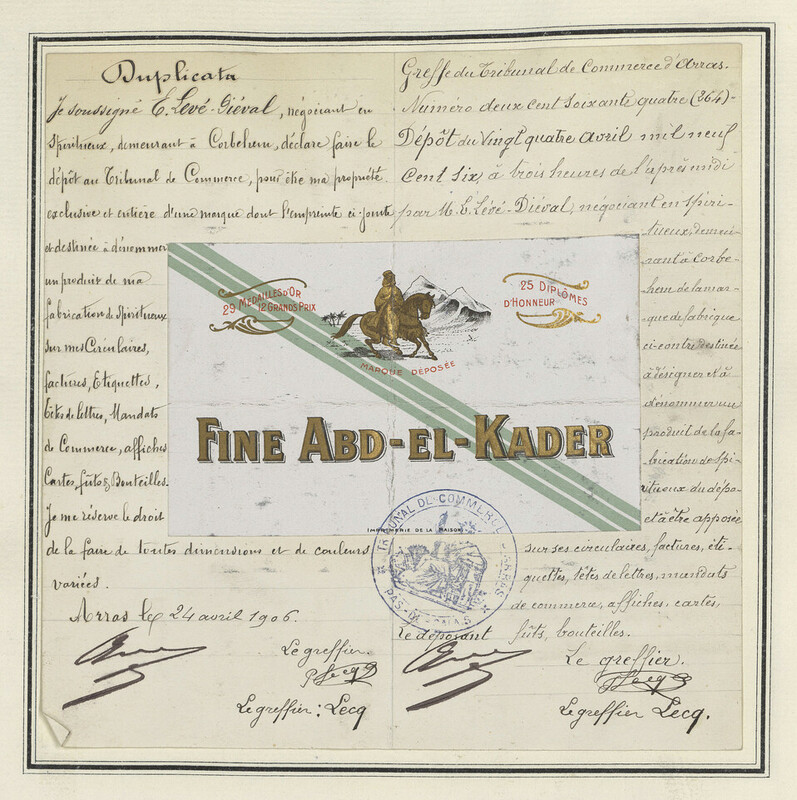 Duplicata
Je soussigné E. Lévé-Diéval, négociant en
Spiritueux, demeurant à Corbehem, déclare faire le
dépôt au Tribunal de Commerce, pour être ma propriété
exclusive et entière d'une marque dont l'empreinte ci-jointe
et destinée à dénommer
un produit de ma
fabrication de Spiritueux
sur mes Circulaires,
factures, Etiquettes,
têtes de lettres, Mandats
de Commerce, affiches
Cartes, fûts & Bouteilles.
Je me réserve le droit
de la faire de toutes dimensions et de couleurs
variées.
Arras le 24 avril 1906.
Le greffier
Le greffier : Lecq
Greffe du Tribunal de Commerce d'Arras.
Numéro deux cent soixante quatre (264)-
Dépôt du Vingt quatre avril mil neuf
cent six, à trois heures de l'après midi
par M. E. Lévé-Diéval, négociant en spiri-
tueux, demeu-
rant à Corbe-
hem de la mar-
que de fabrique
ci-contre destinée
à désigner et à
dénommer un
produit de la fa-
brication de spi-
ritueux du dépo-
et à être apposée
sur ses circulaires, factures, éti-
quettes, têtes de lettres, mandats
de commerce, affiches, cartes,
fûts, bouteilles.
Le déposant
Le greffier.
Le greffier Lecq.
29 MÉDAILLES D'OR
12 GRANDS PRIX
25 DIPLÔMES
D'HONNEUR
MARQUE DÉPOSÉE
FINE ABD-EL-KADER
IMPRIMERIE DE LA MAISON
TRIBUNAL DE COMMERCE D'ARRAS
PAS-DE-CALAIS